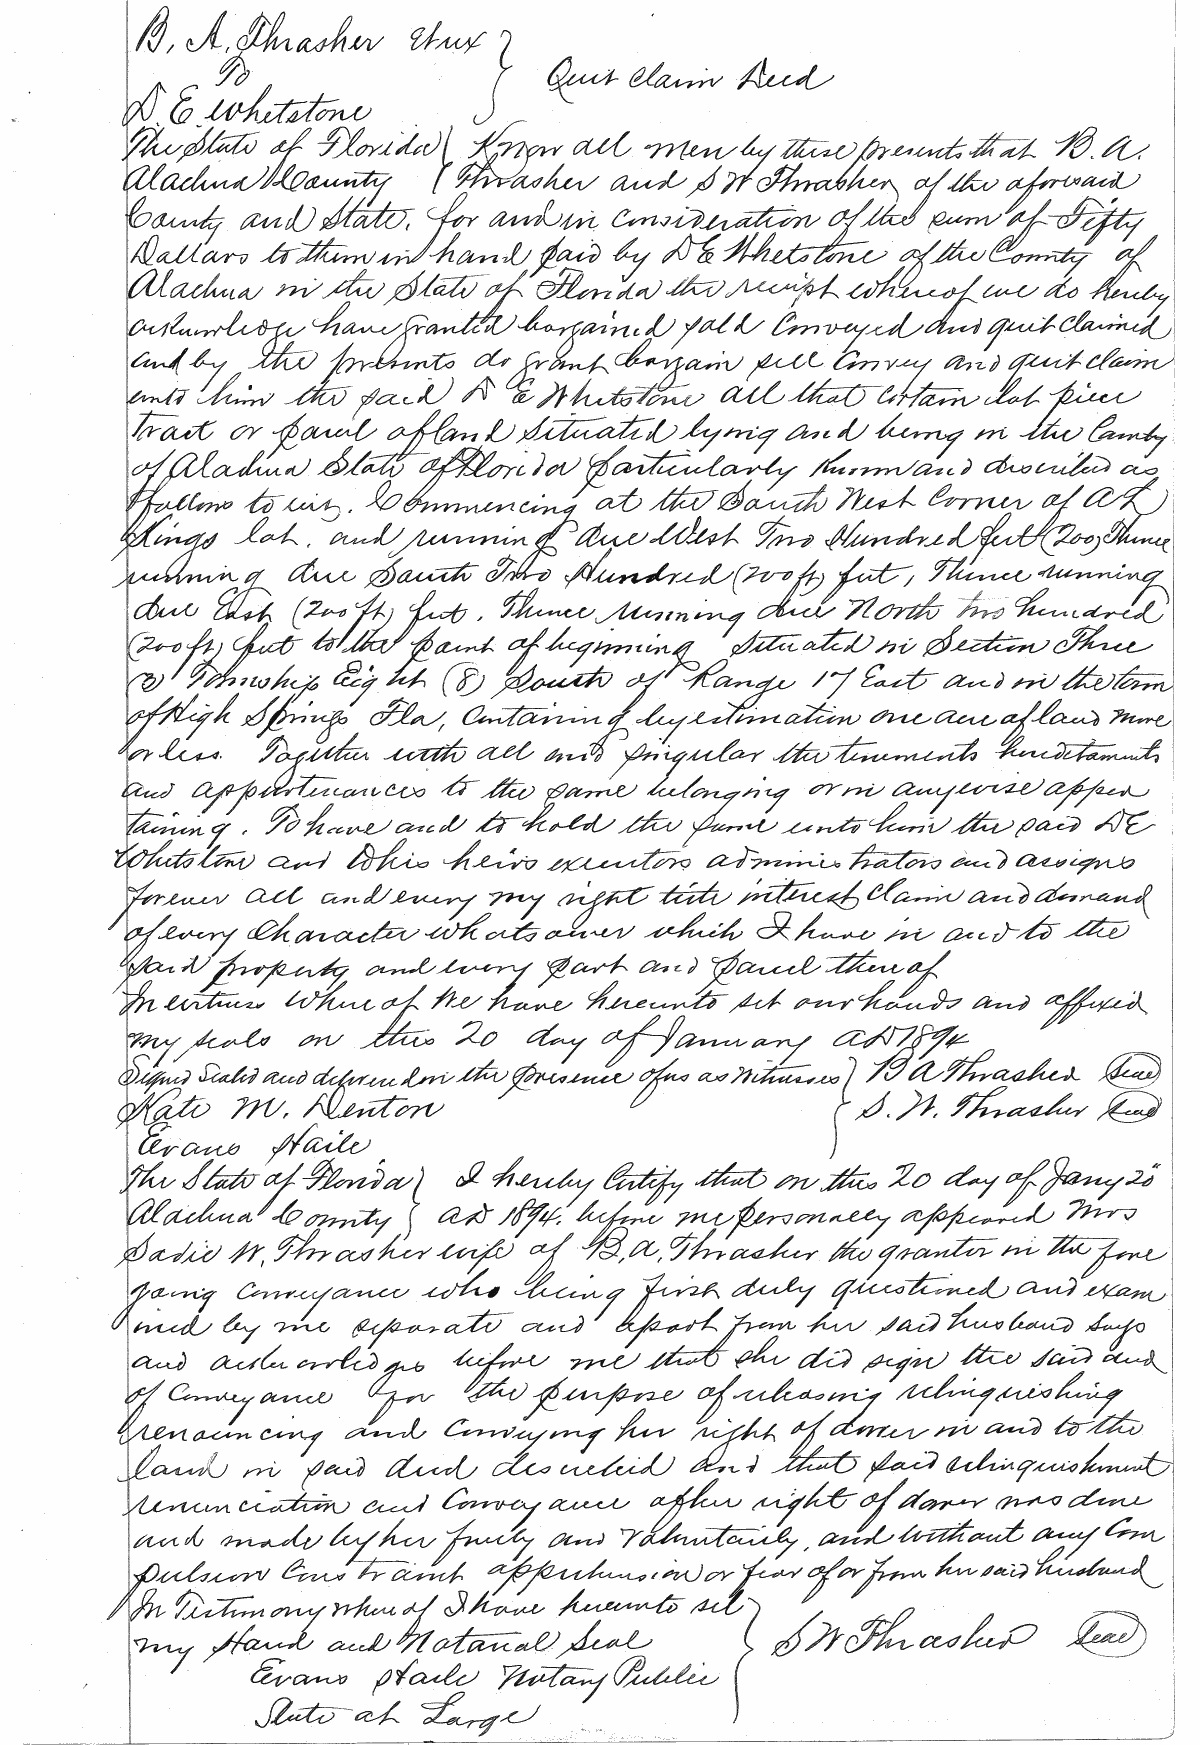 B. A. Thrasher et ux
To
D. E. Whetstone
Quit Claim Deed
The State of Florida Know all men by these presents that B. A.
Alachua County Thrasher and S W Thrasher of the aforesaid
County and State, for and in consideration of the sum of Fifty
Dollars to them in hand paid by D E Whetstone of the County of
Alachua in the State of Florida the receipt whereof we do hereby
acknowledge have granted bargained sold Conveyed and quit claimed
and by the presents do grant bargain sell Convey and quit claim
unto him the said D E Whetstone all that certain lot piece
tract or parcel of land situated lying and being in the County
of Alachua State of Florida particularly known and described as
follows to wit. Commencing at the South West Corner of A L
Kings lot. and running due West Two Hundred feet (200) Thence
running due South Two Hundred (200 ft) feet, Thence running
due East (200 ft) feet. Thence running due North two hundred
(200 ft) feet to the point of beginning situated in Section Three
(3) Township Eight (8) South of Range 17 East and in the town
of High Springs Fla, Containing by estimation one acre of land more
or less. Together with all and singular the tenements hereditaments
and appurtenances to the same belonging or in anywise apper
taining. To have and to hold the same unto him the said D E
Whetstone and his heirs executors administrators and assigns
forever all and every my right title interest Claim and demand
of every Character whatsoever which I have in and to the
said property and every part and parcel thereof
In witness Whereof We have hereunto set our hands and affixed
my seals on this 20 day of January AD 1894
Signed Sealed and delivered in the presence of us as Witnesses B A Thrasher Seal
Kate M. Denton S. W. Thrasher Seal
Evans Haile
The State of Florida I hereby Certify that on this 20 day of Jany 20"
Alachua County AD 1894. before me personally appeared Mrs
Sadie W. Thrasher wife of B. A. Thrasher the granter in the fore
going Conveyance who being first duly questioned and exam
ined by me separate and apart from her said husband says
and acknowledges before me that she did sign the said deed
of Conveyance for the purpose of releasing relinquishing
renouncing and Conveying her right of dower in and to the
land in said deed described and that said relinquishment
renunciation and Conveyance of her right of dower was done
and made by her freely and voluntarily, and without any Com
pulsion Constraint apprehension or fear of or from her said husband
In Testimony Whereof I have hereunto set
my Hand and Notarial Seal S W Thrasher Seal
Evans Haile Notary Public
State at Large